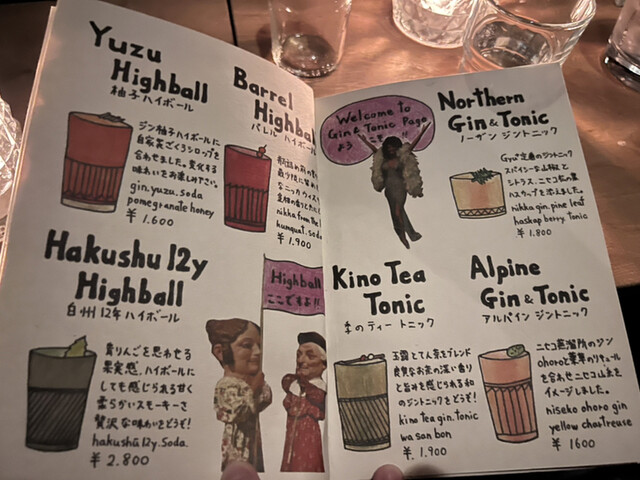 Yuzu
Highball
柚子ハイボール
ジン柚子ハイボールに
自家製ざくろシロップを
合わせました。変化する
味わいをお楽しみ下さい。
gin.yuzu.soda
pomegranate honey
¥ 1.600
Barrel
Highball
バレルハイボール
nikka from the
kumquat.soda
¥ 1.900
Hakushu 12y
Highball
白州12年ハイボール
青りんごを思わせる
果実感。ハイボールに
しても感じられる甘く
柔らかいスモーキーさ
贅沢な味わいをどうぞ!
hakushū 12y.Soda.
¥ 2.800
Highball
ここですよ!!
Welcome to
Gin & Tonic Page
ようこそ!!
Northern
Gin & Tonic
ノーザン ジントニック
Gyu+定番のジントニック
スパイシーな山椒と
シトラス、ニセコ
ハスカップを
nikka gin.pine leaf
haskap berry.tonic
¥ 1.800
Kino Tea
Tonic
季のティー トニック
玉露とてん茶をブレンド
良質なお茶の深い香り
と旨みを感じられる和
のジントニックをどうぞ!
kino tea gin.tonic
wa san bon
¥. 1.900
Alpine
Gin & Tonic
アルパイン ジントニック
ニセコ蒸溜所のジン
ohoroと薬草のリキュール
を合わせニセコ山系を
イメージしました。
niseko ohoro gin
yellow chartreuse
¥ 1600